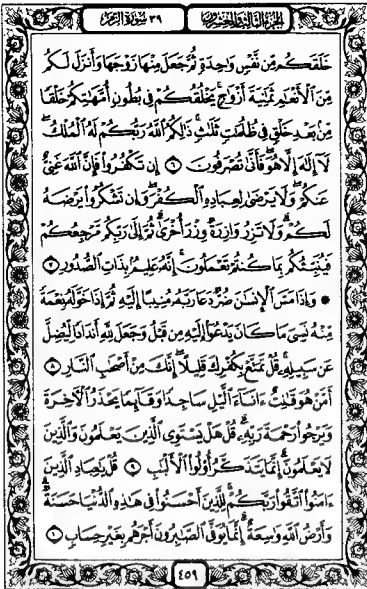 الجزء الثالث والعشرون ٣٩ سورة الزمر
خَلَقَكُم مِّن نَّفْسٍ وَٰحِدَةٍ ثُمَّ جَعَلَ مِنْهَا زَوْجَهَا وَأَنزَلَ لَكُم
مِّنَ ٱلْأَنْعَٰمِ ثَمَٰنِيَةَ أَزْوَٰجٍ ۚ يَخْلُقُكُمْ فِى بُطُونِ أُمَّهَٰتِكُمْ خَلْقًا
مِّنۢ بَعْدِ خَلْقٍ فِى ظُلُمَٰتٍ ثَلَٰثٍ ۚ ذَٰلِكُمُ ٱللَّهُ رَبُّكُمْ لَهُ ٱلْمُلْكُ ۖ
لَآ إِلَٰهَ إِلَّا هُوَ ۖ فَأَنَّىٰ تُصْرَفُونَ ۝٦ إِن تَكْفُرُوا۟ فَإِنَّ ٱللَّهَ غَنِىٌّ
عَنكُمْ ۖ وَلَا يَرْضَىٰ لِعِبَادِهِ ٱلْكُفْرَ ۖ وَإِن تَشْكُرُوا۟ يَرْضَهُ
لَكُمْ ۗ وَلَا تَزِرُ وَازِرَةٌ وِزْرَ أُخْرَىٰ ۗ ثُمَّ إِلَىٰ رَبِّكُم مَّرْجِعُكُمْ
فَيُنَبِّئُكُم بِمَا كُنتُمْ تَعْمَلُونَ ۚ إِنَّهُۥ عَلِيمٌۢ بِذَاتِ ٱلصُّدُورِ ۝٧
۞ وَإِذَا مَسَّ ٱلْإِنسَٰنَ ضُرٌّ دَعَا رَبَّهُۥ مُنِيبًا إِلَيْهِ ثُمَّ إِذَا خَوَّلَهُۥ نِعْمَةً
مِّنْهُ نَسِىَ مَا كَانَ يَدْعُوٓا۟ إِلَيْهِ مِن قَبْلُ وَجَعَلَ لِلَّهِ أَندَادًا لِّيُضِلَّ
عَن سَبِيلِهِۦ ۚ قُلْ تَمَتَّعْ بِكُفْرِكَ قَلِيلًا ۖ إِنَّكَ مِنْ أَصْحَٰبِ ٱلنَّارِ ۝٨
أَمَّنْ هُوَ قَٰنِتٌ ءَانَآءَ ٱلَّيْلِ سَاجِدًا وَقَآئِمًا يَحْذَرُ ٱلْءَاخِرَةَ
وَيَرْجُوا۟ رَحْمَةَ رَبِّهِۦ ۗ قُلْ هَلْ يَسْتَوِى ٱلَّذِينَ يَعْلَمُونَ وَٱلَّذِينَ
لَا يَعْلَمُونَ ۗ إِنَّمَا يَتَذَكَّرُ أُو۟لُوا۟ ٱلْأَلْبَٰبِ ۝٩ قُلْ يَٰعِبَادِ ٱلَّذِينَ
ءَامَنُوا۟ ٱتَّقُوا۟ رَبَّكُمْ ۚ لِلَّذِينَ أَحْسَنُوا۟ فِى هَٰذِهِ ٱلدُّنْيَا حَسَنَةٌ ۗ
وَأَرْضُ ٱللَّهِ وَٰسِعَةٌ ۗ إِنَّمَا يُوَفَّى ٱلصَّٰبِرُونَ أَجْرَهُم بِغَيْرِ حِسَابٍ ۝١٠
٤٥٩